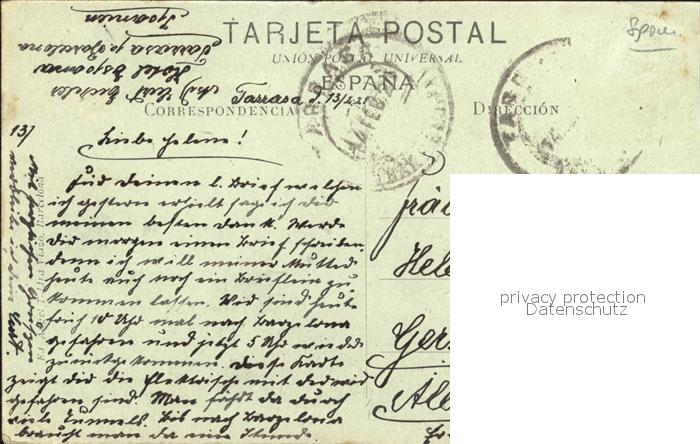 TARJETA POSTAL
UNIÓN POSTAL UNIVERSAL
ESPAÑA
CORRESPONDENCIA
DIRECCIÓN
Spanien
Tarrasa p. Barcelona
Hotel Espana
Tarrasa d. 13/2.21
Liebe Helene!
Für Deinen l. Brief welchen
ich gestern erhielt sage ich dir
meinen besten Dank. Werde
Dir morgen einen Brief schreiben,
denn ich will meiner Mutter
heute auch noch ein Brieflein zu
kommen lassen. Wir sind heute
früh 10 Uhr mal nach Barzelona
gefahren und jetzt 5 Uhr wieder
zurückgekommen. Diese Karte
zeigt dir die Elektrische mit der wir
gefahren sind. Man fährt da durch
viele Tunnels. Bis nach Barzelona
braucht man da eine Stunde
Hele
Gers
privacy protection
Datenschutz